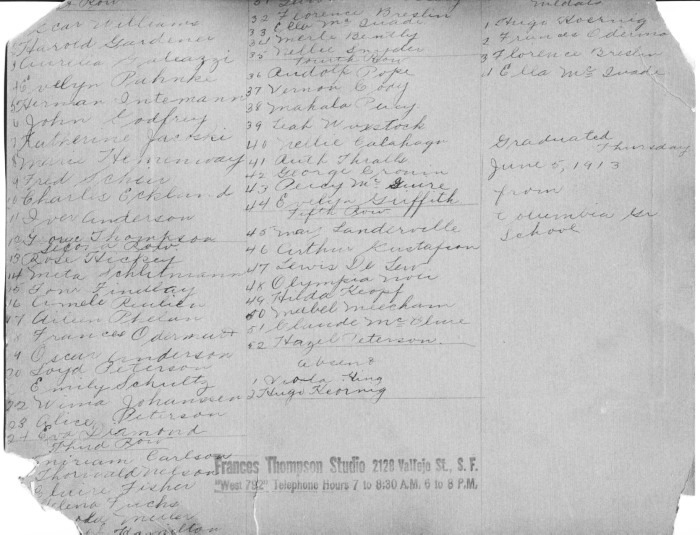 Row
Oscar Williams
Harold Gardener
Aurelia
Evelyn Pahnke
Herman Intemann
6 John Godfrey
7 Katherine
8 Marie Hemenway
9 Fred
10 Charles Ecklund
11 Iver Anderson
12 George Thompson
Second Row
13 Rose Hickey
14 Meta
15 Tom Findlay
16
17 Aileen Phelan
18 Frances Odermatt
19 Oscar Anderson
20 Loyd Peterson
Emily Schultz
22 Wima Johanssen
23 Alice Peterson
24 Eva Diamond
Third Row
Miriam Carlson
Thorwald Nelson
Claire Fisher
Fuchs
Hamilton
32 Florence Breslin
33 Ella
34 Merle Bently
35 Nellie Snyder
Fourth Row
36 Rudolf Pope
37 Vernon Cody
38 Mahala Percy
39 Leah
40 Nellie Calahagn
41 Ruth Thralls
42 George Cronin
43 Percy McGuire
44 Evelyn Griffith
Fifth Row
45 May Landerville
46 Arthur Gustafson
47 Lewis De Lew
48 Olympia
49 Hilda Keopf
50 Mabel Meecham
51 Claude McClure
52 Hazel Peterson.
absent
1 Viola King
2 Hugo Koernig
Medals
1 Hugo Koernig
2 Frances Oderma
3 Florence Breslin
1 Ella
Graduated
Thursday
June 5, 1913
from
Columbia Gr
School
Frances Thompson Studio 2120 Vallejo St., S. F.
"West 792" Telephone Hours 7 to 8:30 A.M. 6 to 8 P.M.